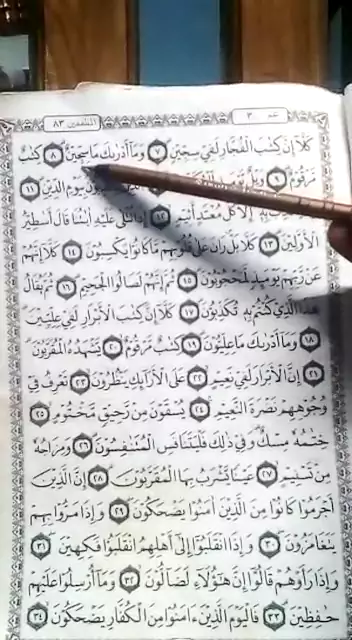 عم ٣٠ المطففين ٨٣
كَلَّا إِنَّ كِتَٰبَ الْفُجَّارِ لَفِي سِجِّينٍ ٧ وَمَا أَدْرَىٰكَ مَا سِجِّينٌ ٨ كِتَٰبٌ
مَرْقُومٌ ٩ وَيْلٌ يَوْمَئِذٍ بِيَوْمِ الدِّينِ ١١
إِلَّا كُلُّ مُعْتَدٍ أَثِيمٍ ١٢ إِذَا تُتْلَىٰ عَلَيْهِ ءَايَٰتُنَا قَالَ أَسَٰطِيرُ
الْأَوَّلِينَ ١٣ كَلَّا بَلْ رَانَ عَلَىٰ قُلُوبِهِمْ مَا كَانُوا يَكْسِبُونَ ١٤ كَلَّا إِنَّهُمْ
عَنْ رَبِّهِمْ يَوْمَئِذٍ لَمَحْجُوبُونَ ١٥ ثُمَّ إِنَّهُمْ لَصَالُوا الْجَحِيمِ ١٦ ثُمَّ يُقَالُ
هَٰذَا الَّذِي كُنْتُمْ بِهِ تُكَذِّبُونَ ١٧ كَلَّا إِنَّ كِتَٰبَ الْأَبْرَارِ لَفِي عِلِّيِّينَ
١٨ وَمَا أَدْرَىٰكَ مَا عِلِّيُّونَ ١٩ كِتَٰبٌ مَرْقُومٌ ٢٠ يَشْهَدُهُ الْمُقَرَّبُونَ
٢١ إِنَّ الْأَبْرَارَ لَفِي نَعِيمٍ ٢٢ عَلَى الْأَرَائِكِ يَنْظُرُونَ ٢٣ تَعْرِفُ فِي
وُجُوهِهِمْ نَضْرَةَ النَّعِيمِ ٢٤ يُسْقَوْنَ مِنْ رَحِيقٍ مَخْتُومٍ ٢٥
خِتَٰمُهُ مِسْكٌ وَفِي ذَٰلِكَ فَلْيَتَنَافَسِ الْمُتَنَٰفِسُونَ ٢٦ وَمِزَاجُهُ
مِنْ تَسْنِيمٍ ٢٧ عَيْنًا يَشْرَبُ بِهَا الْمُقَرَّبُونَ ٢٨ إِنَّ الَّذِينَ
أَجْرَمُوا كَانُوا مِنَ الَّذِينَ ءَامَنُوا يَضْحَكُونَ ٢٩ وَإِذَا مَرُّوا بِهِمْ
يَتَغَامَزُونَ ٣٠ وَإِذَا انْقَلَبُوا إِلَىٰ أَهْلِهِمُ انْقَلَبُوا فَكِهِينَ ٣١
وَإِذَا رَأَوْهُمْ قَالُوا إِنَّ هَٰؤُلَاءِ لَضَالُّونَ ٣٢ وَمَا أُرْسِلُوا عَلَيْهِمْ
حَٰفِظِينَ ٣٣ فَالْيَوْمَ الَّذِينَ ءَامَنُوا مِنَ الْكُفَّارِ يَضْحَكُونَ ٣٤